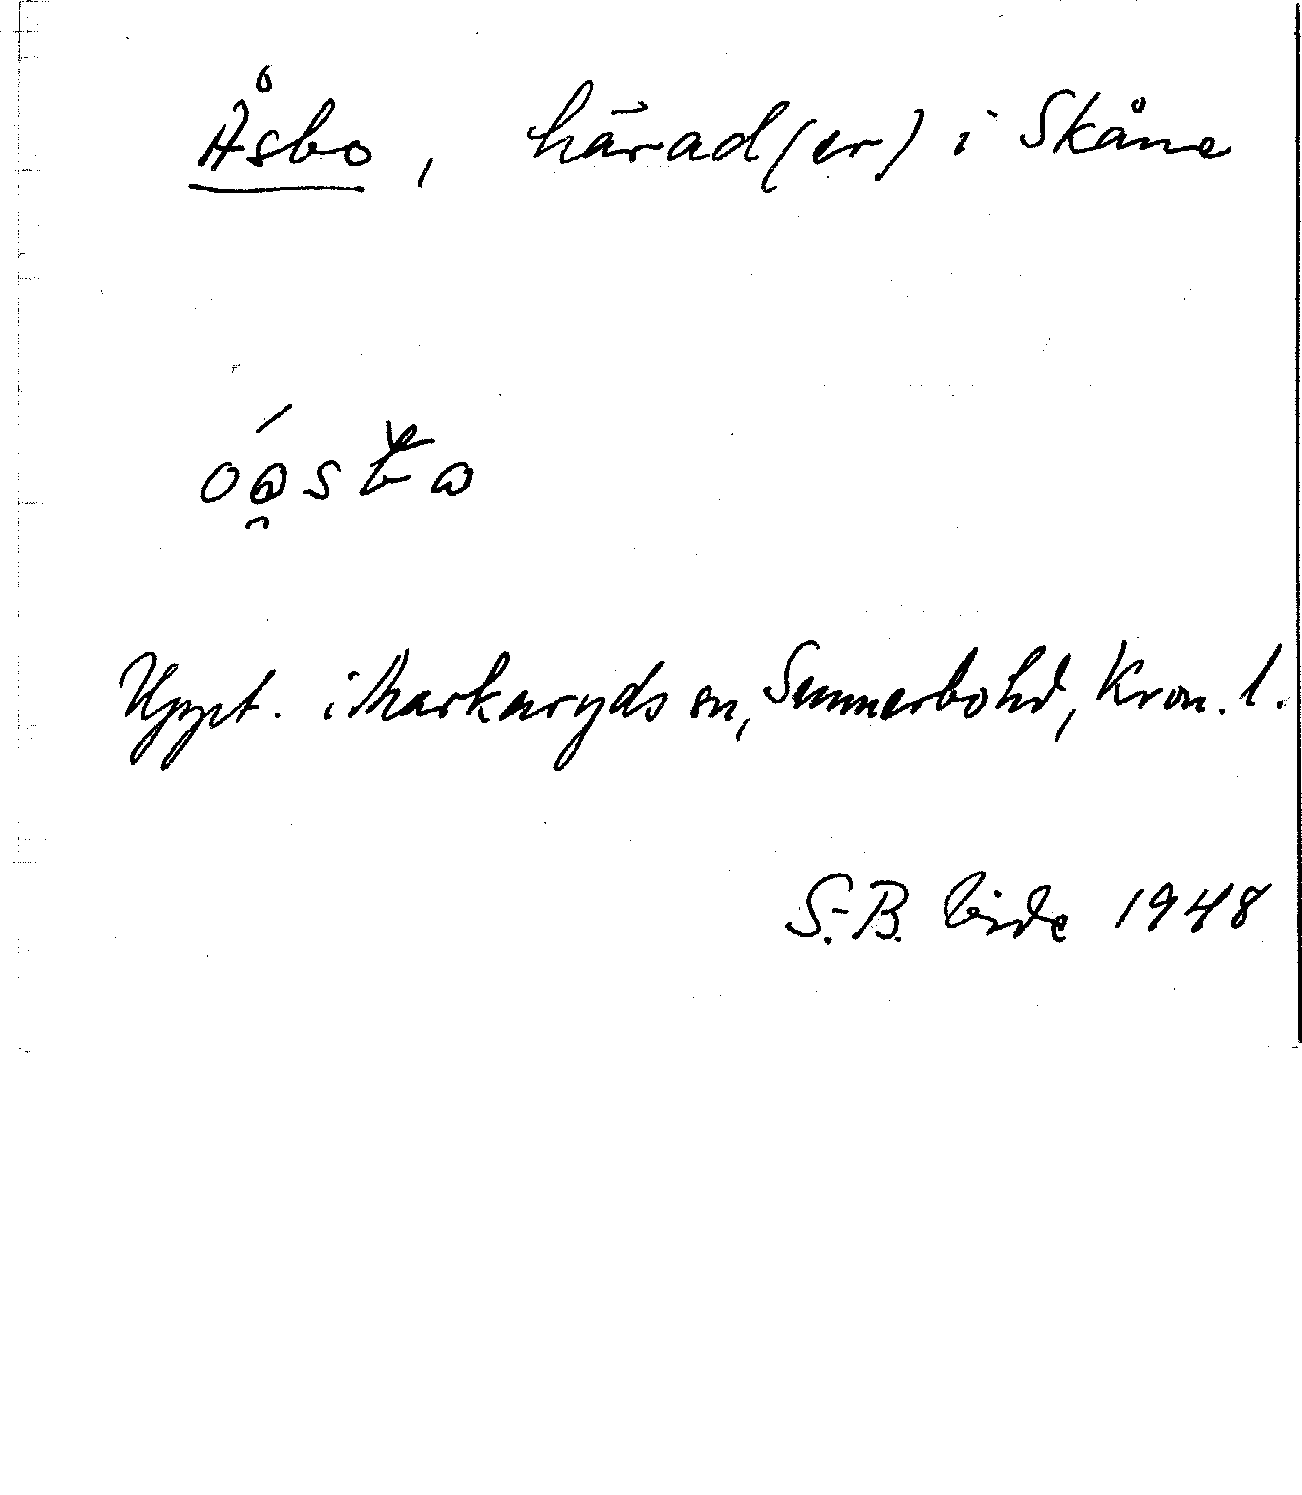 Åsbo, härad(er) i Skåne
Uppt. i Markaryds sn, Sunnerbohd, Kron. l.
S.-B. 1948